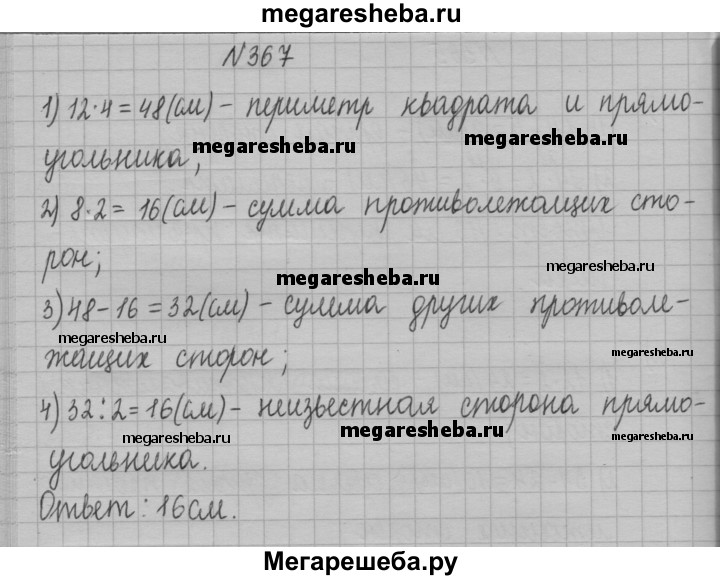 megaresheba.ru
N367
1) 12·4=48(см) - периметр квадрата и прямо-
megaresheba.ru
megaresheba.ru
угольника;
2) 8·2= 16(см) - сумма противолежащих сто-
megaresheba.ru
рон;
megaresheba.ru
megaresheba.ru
3) 48-16=32(см) - сумма других противоле-
megaresheba.ru
megaresheba.ru
жащих сторон;
4) 32:2=16(см) - неизвестная сторона прямо-
megaresheba.ru
megaresheba.ru
megaresheba.ru
угольника.
Ответ: 16см.
Мегарешеба.ру